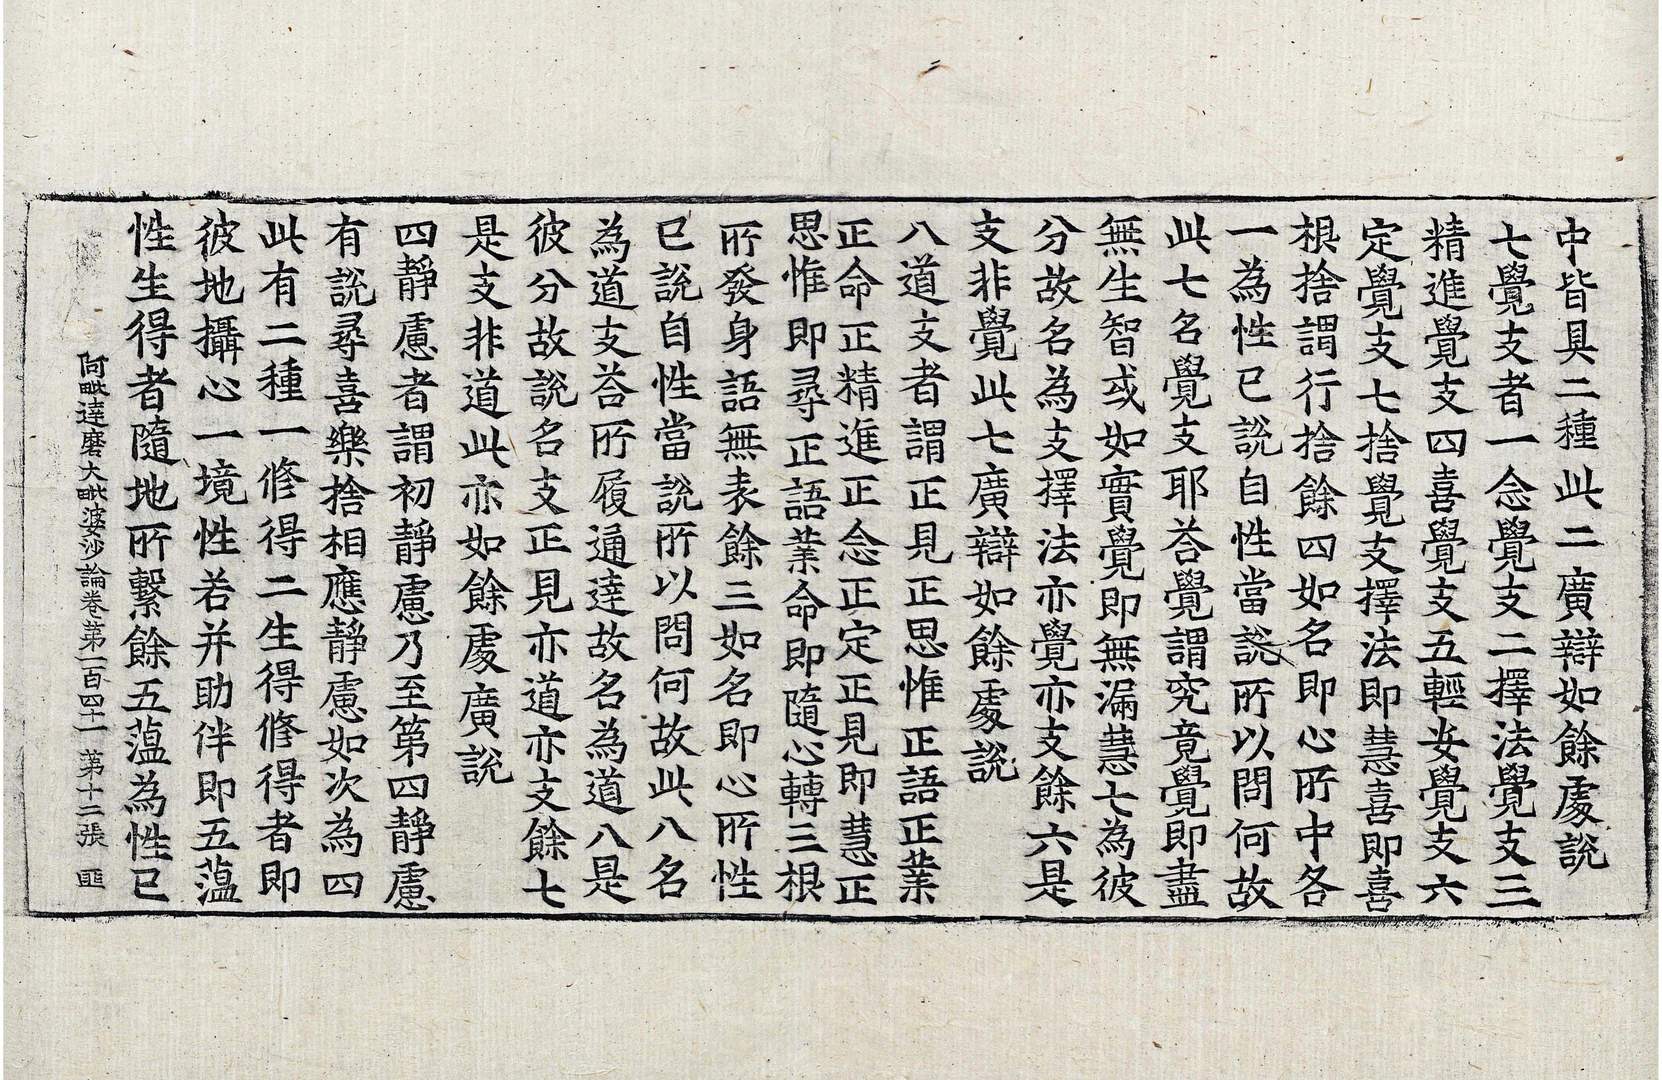 中皆具二種此二廣辯如餘處說
七覺支者一念覺支二擇法覺支三
精進覺支四喜覺支五輕安覺支六
定覺支七捨覺支擇法即慧喜即喜
根捨謂行捨餘四如名即心所中各
一為性已說自性當說所以問何故
此七名覺支耶荅覺謂究竟覺即盡
無生智或如實覺即無漏慧七為彼
分故名為支擇法亦覺亦支餘六是
支非覺此七廣辯如餘處說
八道支者謂正見正思惟正語正業
正命正精進正念正定正見即慧正
思惟即尋正語業命即隨心轉三根
所發身語無表餘三如名即心所性
已說自性當說所以問何故此八名
為道支荅所履通達故名為道八是
彼分故說名支正見亦道亦支餘七
是支非道此亦如餘處廣說
四靜慮者謂初靜慮乃至第四靜慮
有說尋喜樂捨相應靜慮如次為四
此有二種一修得二生得修得者即
彼地攝心一境性若并助伴即五蘊
性生得者隨地所繫餘五薀為性已
阿毗達磨大毗婆沙論卷第一百四十一 第十二張 匪